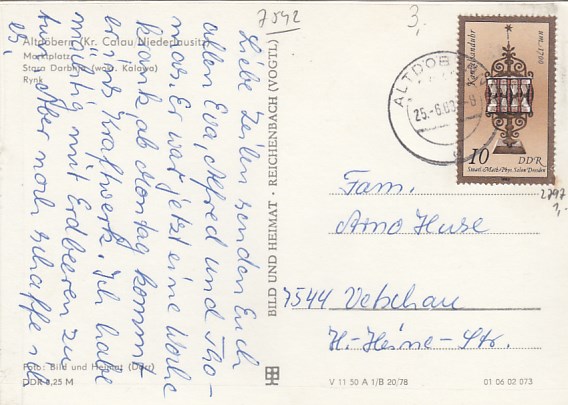 7542
3,
Altdöbern (Kr. Calau/Niederlausitz)
Marktplatz
Stara Darbnja (wokr. Kalawa)
Rynk
Liebe Zeilen senden Euch
allen Eva, Alfred und Tho-
mas. Er war jetzt eine Woche
krank, ab Montag kommt
er ins Kraftwerk. Ich habe
mächtig mit Erdbeeren zu
tun. Aber noch schaffe ich
es.
Foto: Bild und Heimat (Darr)
DDR 0,25 M
BILD UND HEIMAT · REICHENBACH (VOGTL)
V 11 50 A 1/B 20/78
01 06 02 073
ALTDÖB
25.-6.83
Kanzelsanduhr
um 1700
10 DDR
Staatl. Math.-Phys. Salon Dresden
2797
1,-
Fam.
Arno Huse
7544 Vetschau
H.-Heine-Str.